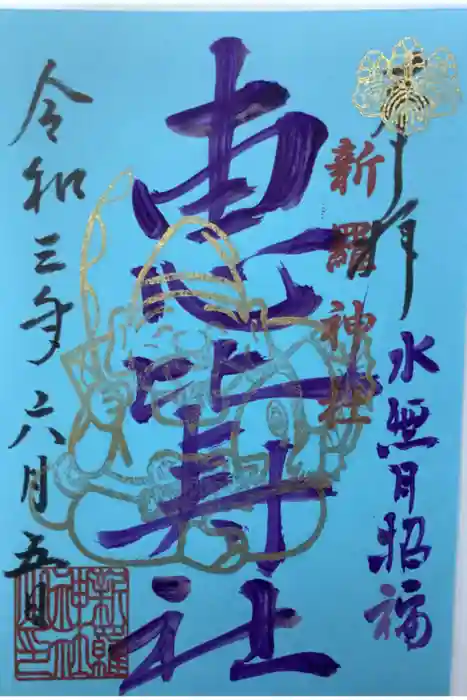 奉拝
新羅神社
水無月招福
恵比寿社
令和三年六月五日
新羅
神社
之印